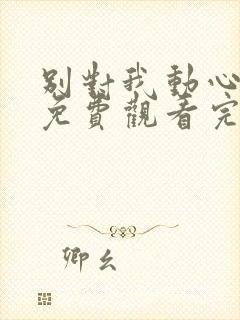 別對我動心
免費觀看完
卿幺